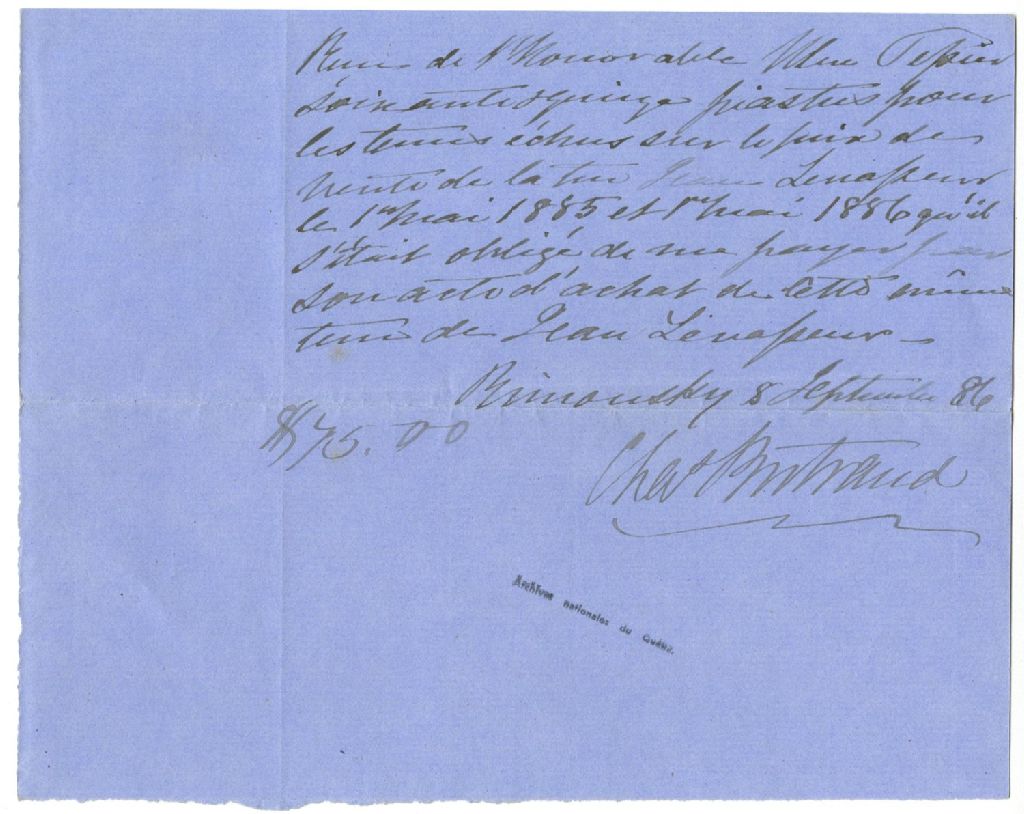 Recu de l'Honorable Ulric Tessier
soixante & quinze piastres pour
les termes échus sur le prix de
vente de la terre Jean Levasseur
le 1er mai 1885 et 1er mai 1886 qu'il
s'était obligé de me payer par
son acte d'achat de cette même
terre de Jean Levasseur -
Rimousky 8 Septembre 86
$75.00
Chas Bertrand
Archives nationales du Québec.